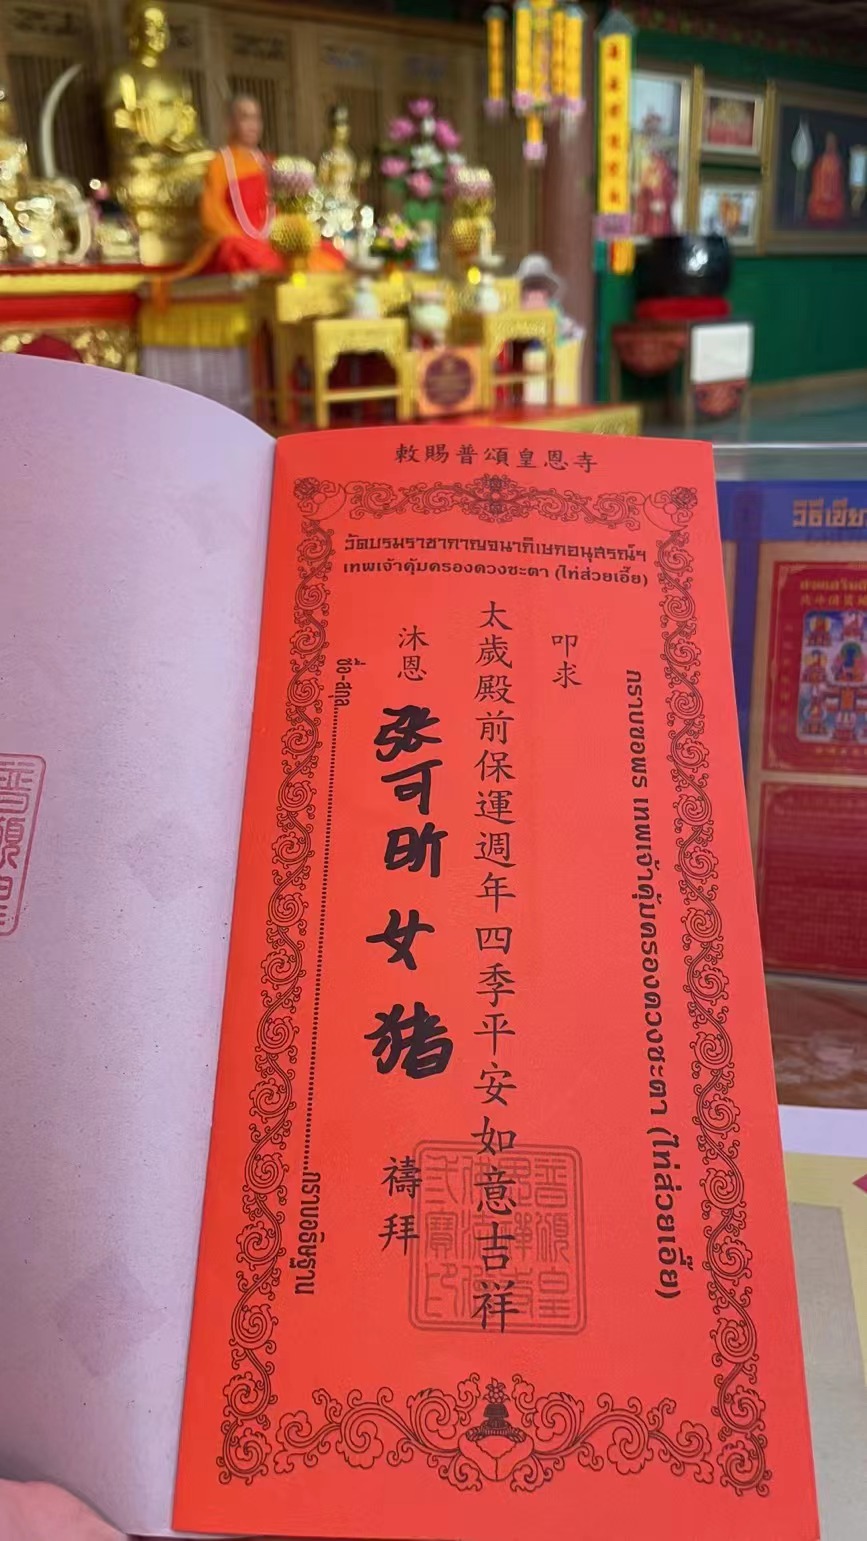 敕賜普頌皇恩寺
วัดบรมราชากาญจนาภิเษกอนุสรณ์ฯ
เทพเจ้าคุ้มครองดวงชะตา (ไท่ส่วยเอี๊ย)
กราบขอพร เทพเจ้าคุ้มครองดวงชะตา (ไท่ส่วยเอี๊ย)
叩求
太歲殿前保運週年四季平安如意吉祥
沐恩 张可昕 女 猪 禱拜
ชื่อ-สกุล กราบอธิษฐาน
普頌皇
วิธีเขีย